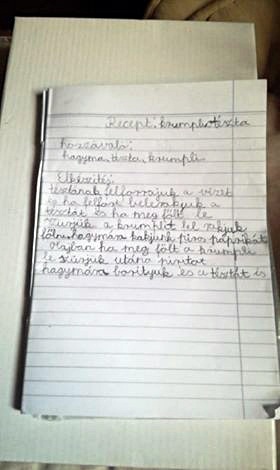 Recept: krumplis tészta
hozzávaló:
hagyma, tészta, krumpli
Elkészítés:
tésztának felforrajuk a vizet
és ha felfőtt belerakjuk a
tésztát és ha meg főtt le
szűrjük a krumplit fel rakjuk
főlni hagymára rakjunk piros paprikát
olajban ha meg főlt a krumpli
le szűrjük utána pirított
hagymára borítjuk és a tésztát is